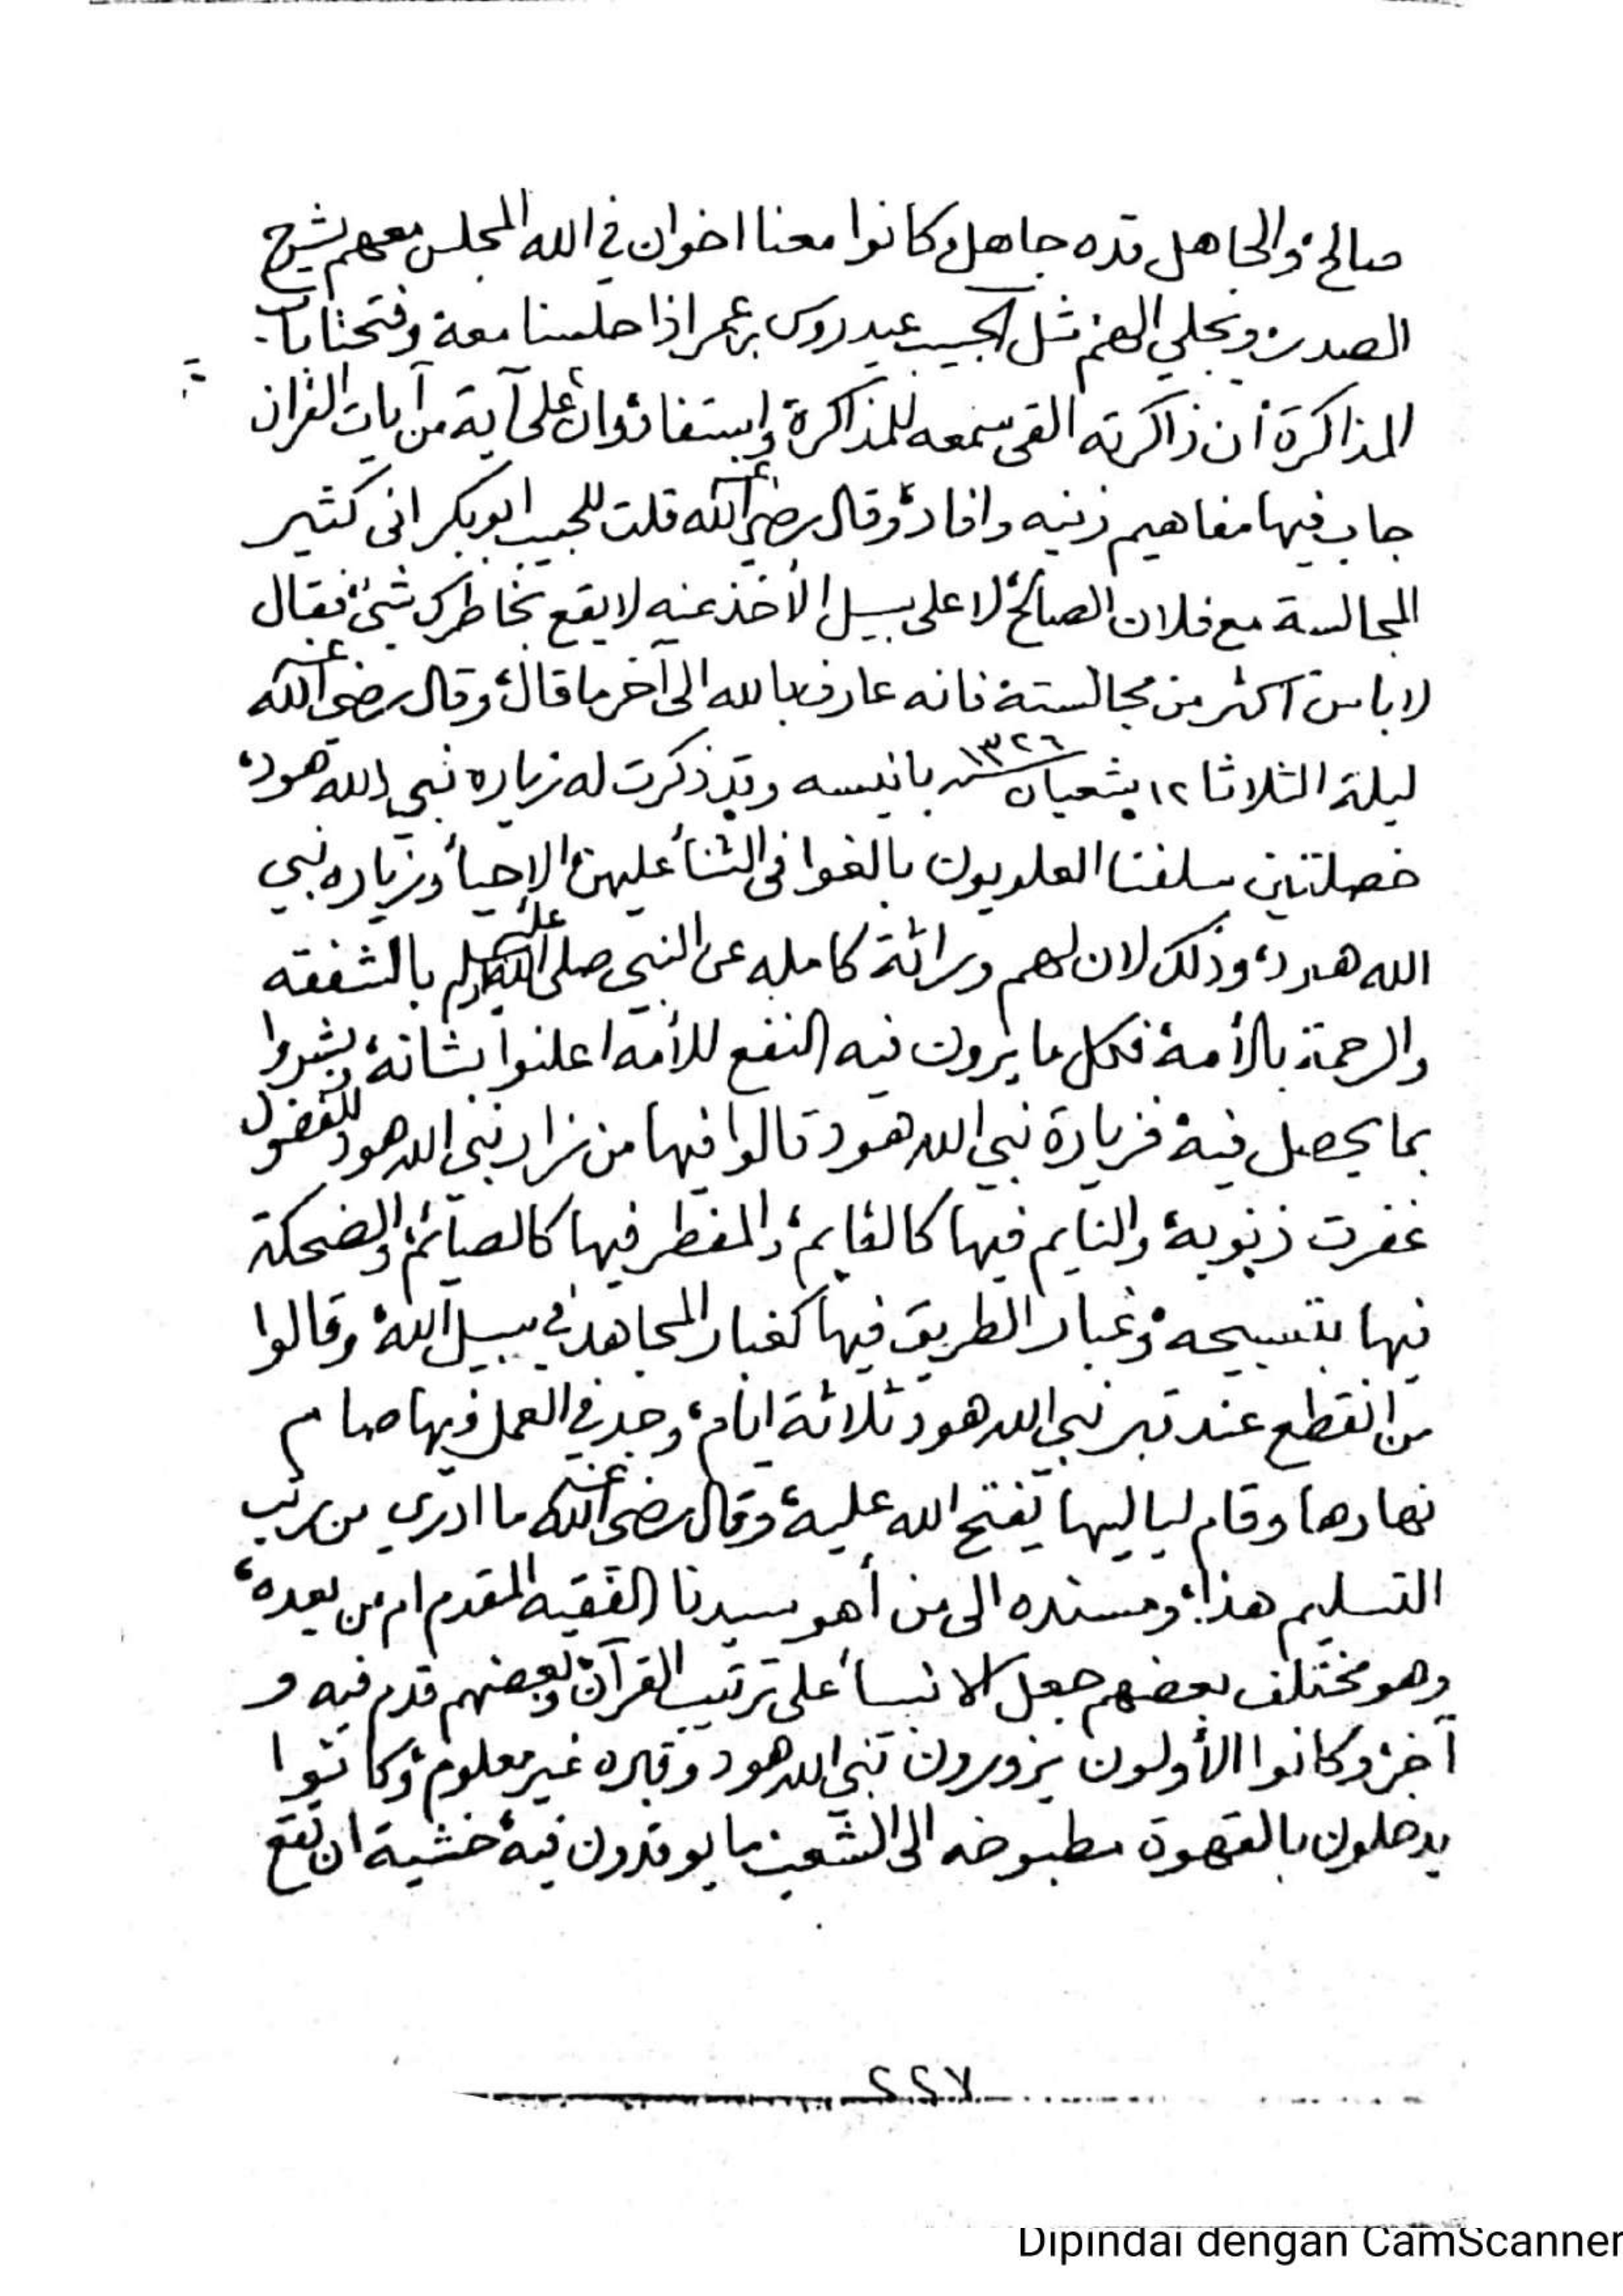 صالح، والجاهل قده جاهل، كانوا معنا اخوان في الله المجلس معهم يشرح
الصدر، ويجلي الهم، مثل الحبيب عيدروس بن عمر اذا جلسنا معه وفتحنا باب
المذاكرة، ان ذاكرته القى سمعه للمذاكرة، واستفاد، وان على آية من آيات القران
جاب فيها مفاهيم زينه وافاد، وقال رضي الله عنه قلت للحبيب ابوبكر انى كثير
المجالسة مع فلان الصالح، لا على سبيل الأخذ عنه لا يقع بخاطرك شئ، فقال
لا باس اكثر من مجالسته فانه عارف بالله الى آخر ما قال، وقال رضي الله عنه
ليلة الثلاثا ١٢ شعبان سنه ١٣٢٦ بانيسه وقد ذكرت له زياره نبي الله هود،
خصلتين سلفنا العلويون بالغوا في الثنأ عليهن، الاحيأ، وزياره نبي
الله هود، وذلك لان لهم وراثة كامله عن النبي صلى الله عليه وسلم بالشفقه
والرحمة بالأمة، فكل ما يرون فيه النفع للأمه اعلنوا بشانه، وبشروا
بما يحصل فيه، فزيارة نبي الله هود قالوا فيها من زار نبي الله هود للفضول
غفرت ذنوبه، والنايم فيها كالقايم، والمفطر فيها كالصائم، والضحكة
فيها بتسبيحه، وغبار الطريق فيها كغبار المجاهد في سبيل الله، وقالوا
من انقطع عند قبر نبي الله هود ثلاثة ايام، وجد في العمل فيها صام
نهارها وقام لياليها يفتح الله عليه، وقال رضي الله عنه ما ادري من رتب
التسليم هذا، ومسنده الى من أهو سيدنا الفقيه المقدم ام من بعده،
وهو مختلف بعضهم جعل الانبيأ على ترتيب القرآن، وبعضهم قدم فيه و
آخر، وكانوا الأولون يزورون نبي الله هود وقبره غير معلوم، وكانوا
يدخلون بالقهوة مطبوخه الى الشعب، ما يوقدون فيه، خشية ان تقع
٢٢٧
Dipindai dengan CamScanner